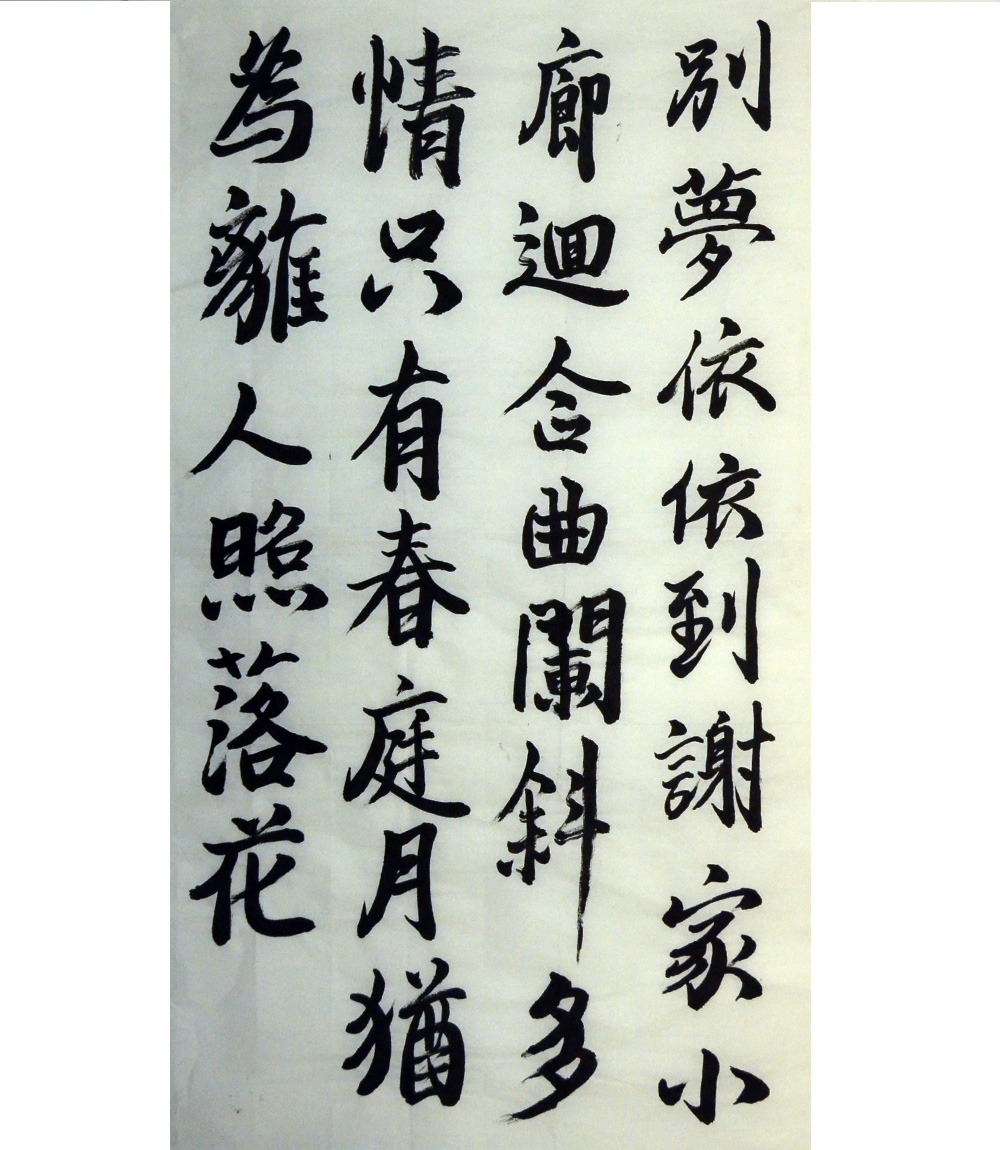 別夢依依到謝家小
廊迴合曲闌斜多
情只有春庭月猶
為離人照落花